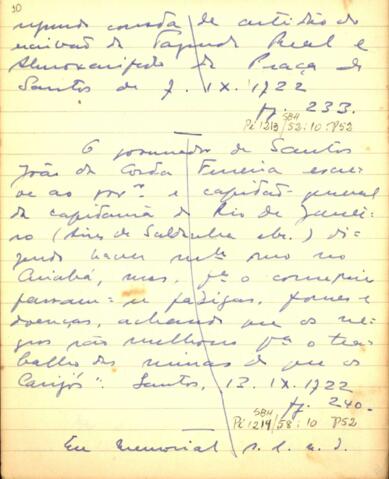 30
segundo consta de certidão do
escrivão da Fazenda Real e
Almoxarifado da Praça de
Santos de 7. IX. 1722
ff. 233.
SBH
Pi 1213 / 58: 10. P52
O governador de Santos
João da Costa Ferreira escre-
ve ao govr. e capitão-general
da capitania do Rio de Janei-
ro (Aires de Saldanha etc.) di-
zendo haver mto. ouro no
Cuiabá, mas, pa. o conseguir
passam-se fadigas, fomes e
doenças, achando que os ne-
gros são melhores pa. o tra-
balho das minas do que os
Carijós". Santos, 13. IX. 1722
ff. 240.
SBH
Pi 1214 / 58: 10 P52
Em Memorial s.l.n.d.